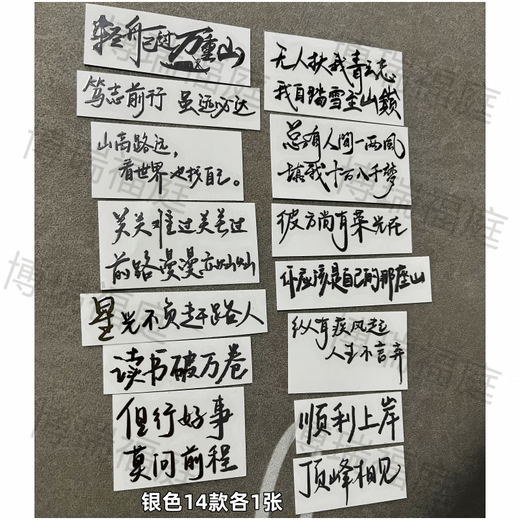 轻舟已过万重山
笃志前行 虽远必达
山高路远，
看世界也找自己。
关关难过关关过
前路漫漫亦灿灿
星光不负赶路人
读书破万卷
但行好事
莫问前程
无人扶我青云志
我自踏雪至山巅
总有人间一两风
填我十万八千梦
彼方尚有荣光在
你应该是自己的那座山
纵有疾风起
人生不言弃
顺利上岸
顶峰相见
银色14款各1张
博瑞福庭